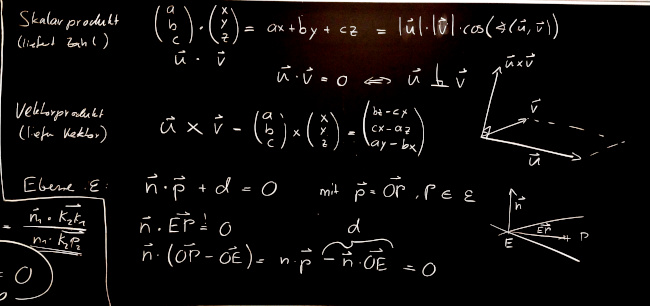 Skalarprodukt
(liefert Zahl!)
(a b c) · (x y z) = ax+by+cz = |u⃗|·|v⃗|·cos(∢(u⃗,v⃗))
u⃗ · v⃗
u⃗·v⃗ = 0 ⟺ u⃗ ⊥ v⃗
u⃗×v⃗
v⃗
u⃗
Vektorprodukt
(liefert Vektor)
u⃗ × v⃗ = (a b c) × (x y z) = (bz-cy cx-az ay-bx)
Ebene E:
n⃗·p⃗ + d = 0 mit p⃗ = OP⃗, P ∈ E
n⃗·EP⃗ ! = 0
n⃗·(OP⃗ - OE⃗) = n·p⃗ - n⃗·OE⃗ = 0
d
n⃗
E
EP⃗
P
= n₁·K₂K₁⃗
= 0